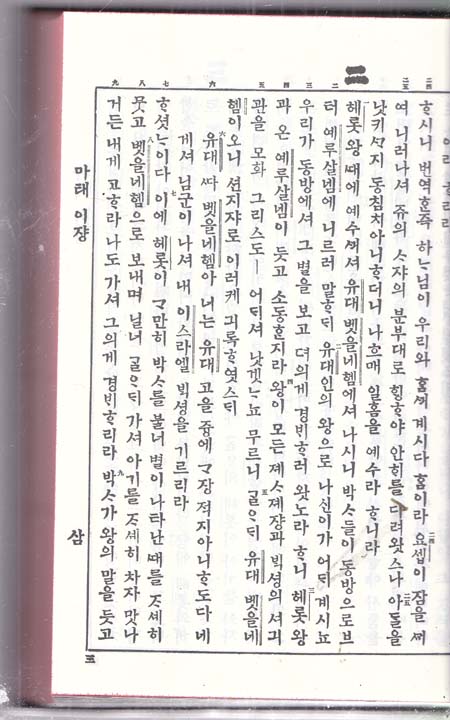 二四
ᄒᆞ시니 번역ᄒᆞᆫ즉 하ᄂᆞ님이 우리와 ᄒᆞᆷᄭᅴ 계시다 ᄒᆞᆷ이라 요셉이 잠을 ᄭᆡ
二五
여 니러나셔 쥬의 ᄉᆞ쟈의 분부대로 ᄒᆡᆼᄒᆞ야 안ᄒᆡ를 ᄃᆞ려왓스나 아ᄃᆞᆯ을
낫키ᄭᆞ지 동침치아니ᄒᆞ더니 나흐매 일홈을 예수라 ᄒᆞ니라
二
헤롯왕 ᄯᅢ에 예수ᄭᅴ셔 유대 벳을네헴에셔 나시니 박ᄉᆞ들이 동방으로브
二
터 예루살넴에 니르러 말ᄒᆞᄃᆡ 유대인의 왕으로 나신이가 어ᄃᆡ 계시뇨
三
우리가 동방에셔 그 별을 보고 뎌의게 경ᄇᆡᄒᆞ러 왓노라 ᄒᆞ니 헤롯 왕
四
과 온 예루살넴이 듯고 소동ᄒᆞᆫ지라 왕이 모든 졔ᄉᆞ졔쟝과 ᄇᆡᆨ셩의 셔긔
五
관을 모화 그리스도ㅣ 어ᄃᆡ셔 낫겟ᄂᆞ뇨 무르니 ᄀᆞᆯᄋᆞᄃᆡ 유대 벳을네
헴이오니 션지쟈로 이러케 긔록ᄒᆞ엿스ᄃᆡ
六
유대 ᄯᅡ 벳을네헴아 너는 유대 고을 즁에 ᄀᆞ쟝 젹지아니ᄒᆞ도다 네
게셔 님군이 나셔 내 이스라엘 ᄇᆡᆨ셩을 기르리라
七
ᄒᆞ셧ᄂᆞ이다 이에 헤롯이 ᄀᆞ만히 박ᄉᆞ를 불너 별이 나타난 ᄯᅢ를 ᄌᆞ셰히
八
뭇고 벳을네헴으로 보내며 닐너 ᄀᆞᆯᄋᆞᄃᆡ 가셔 아기를 ᄌᆞ셰히 차자 맛나
九
거든 내게 고ᄒᆞ라 나도 가셔 그의게 경ᄇᆡᄒᆞ리라 박ᄉᆞ가 왕의 말을 듯고
마태 이쟝
삼
三